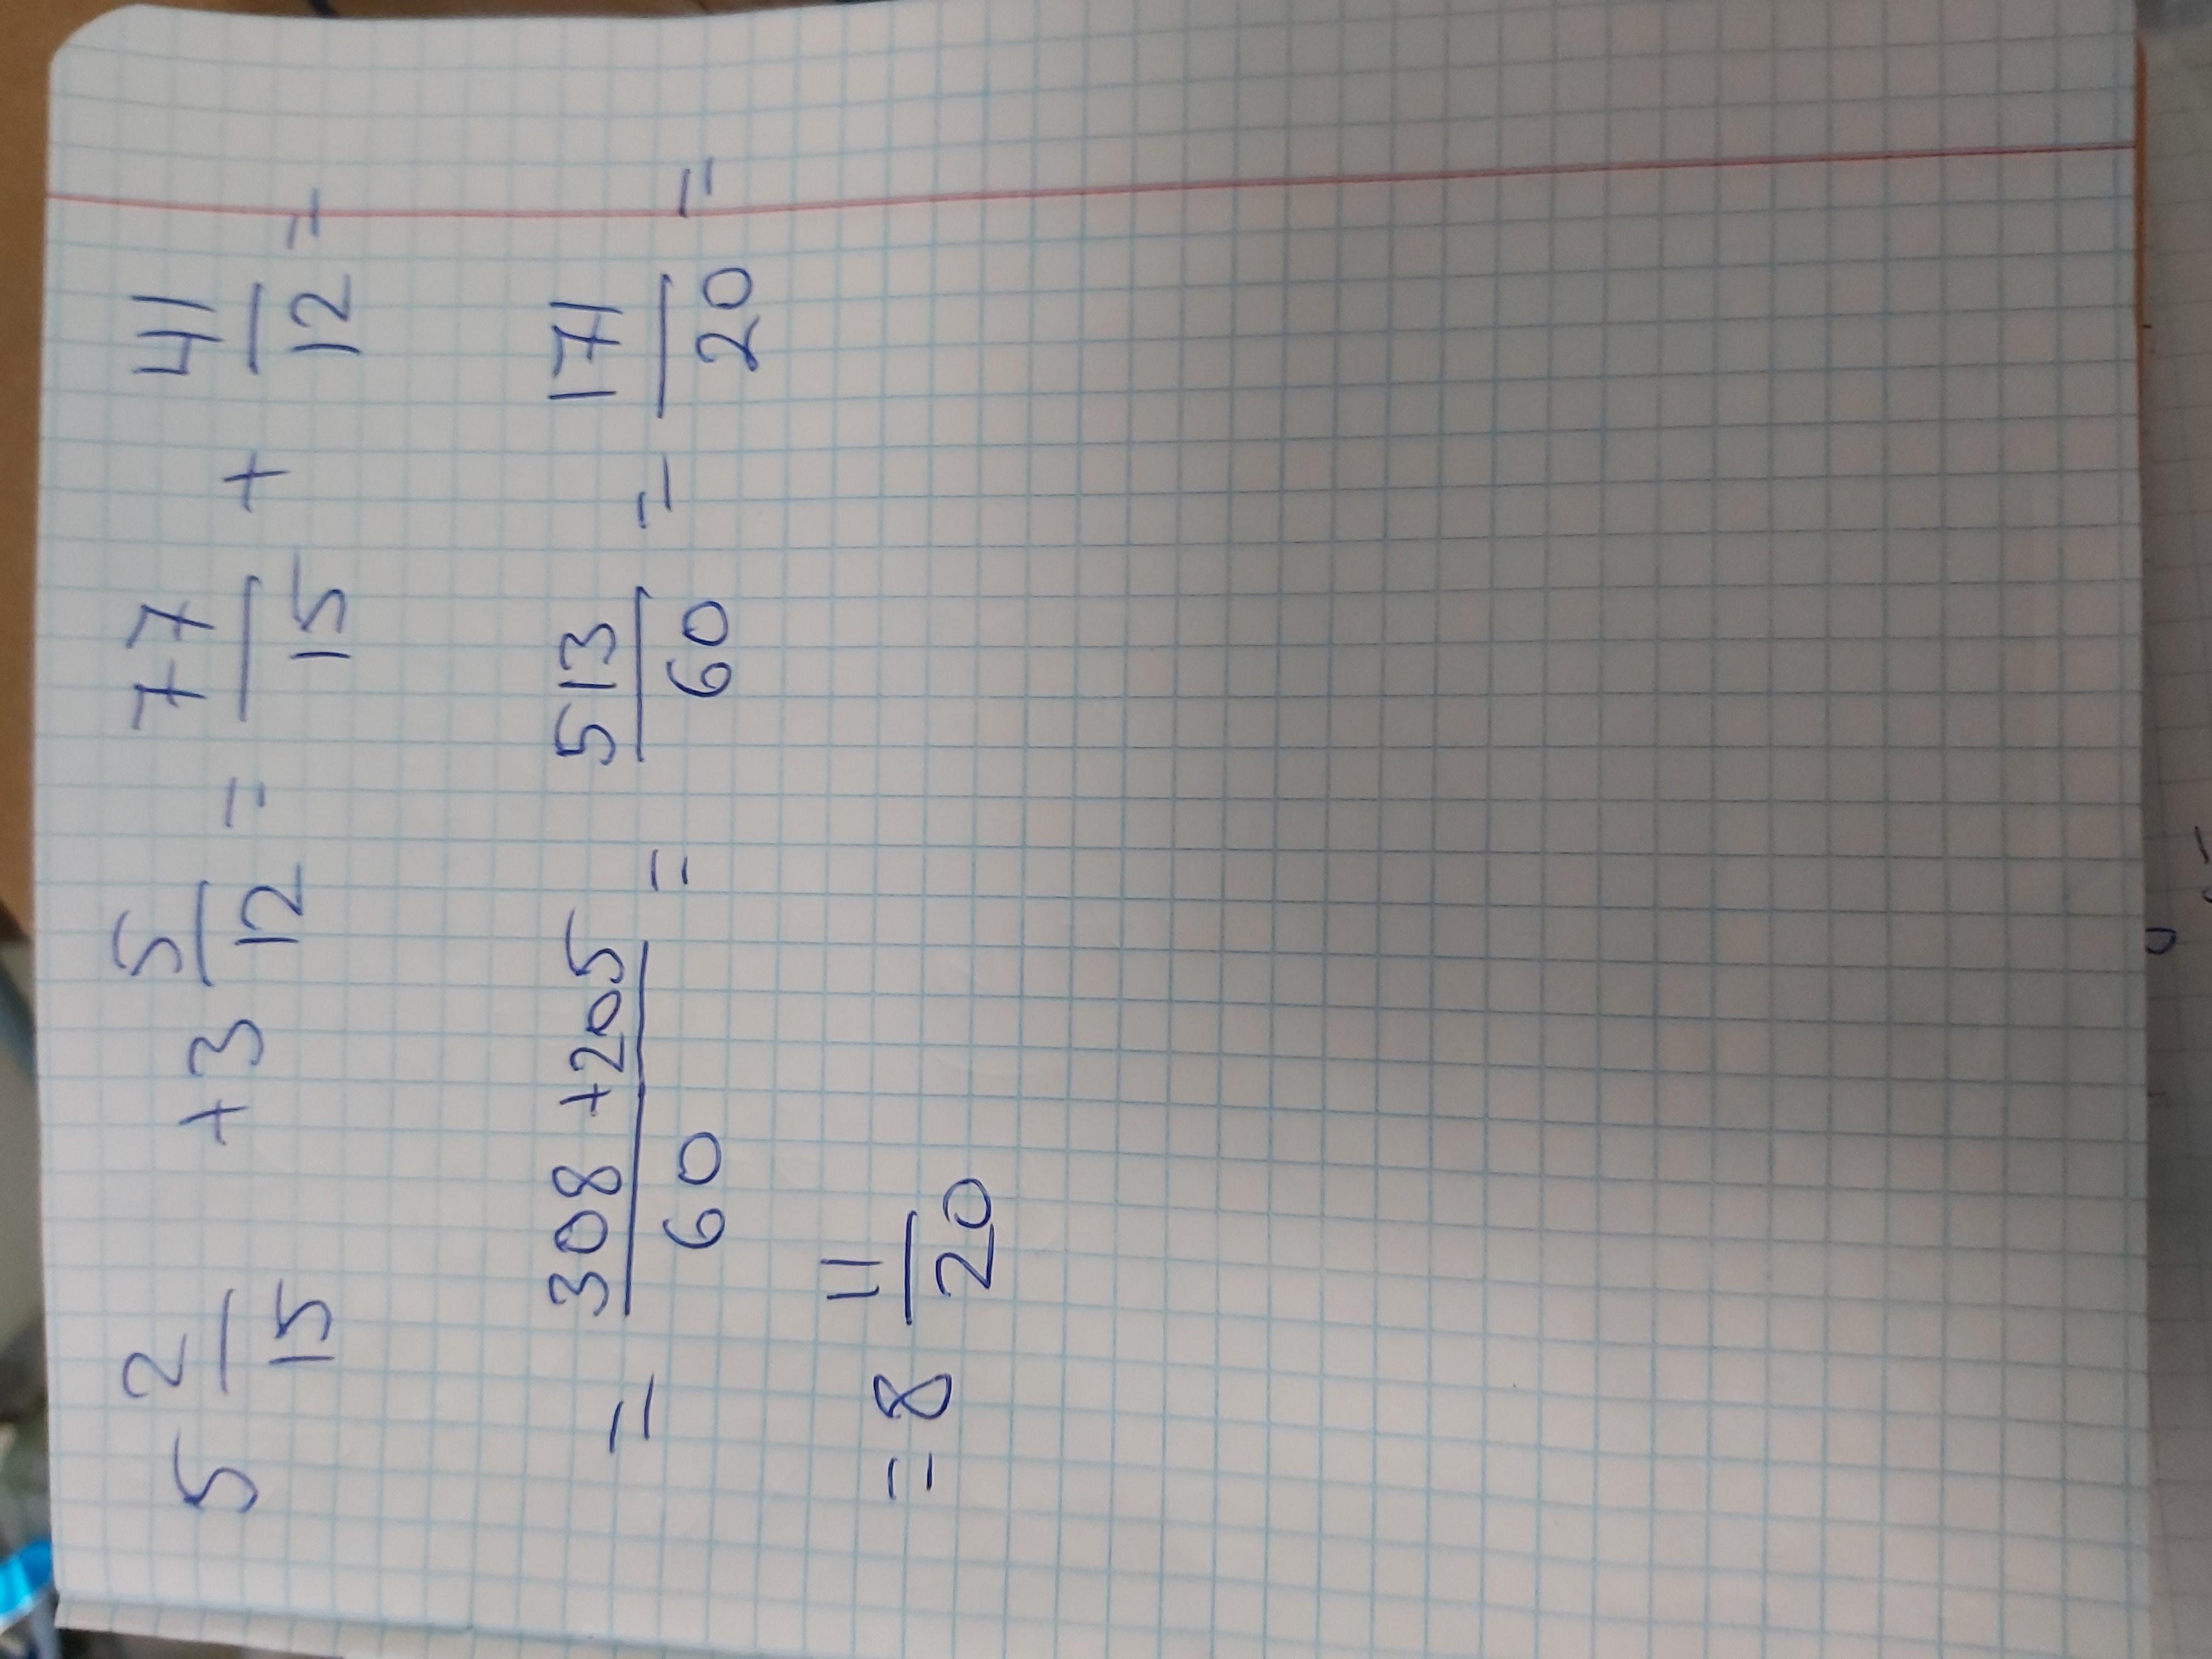 5 2/15 + 3 5/12 = 77/15 + 41/12 =
= 308 + 205/60 = 513/60 = 171/20 =
= 8 11/20